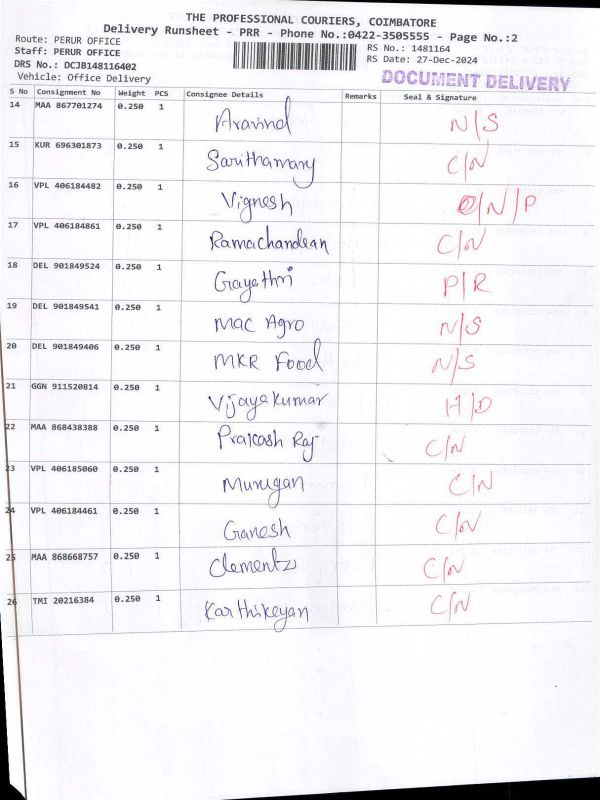 THE PROFESSIONAL COURIERS, COIMBATORE
Delivery Runsheet - PRR - Phone No.:0422-3505555 - Page No.:2
Route: PERUR OFFICE RS No.: 1481164
Staff: PERUR OFFICE RS Date: 27-Dec-2024
DRS No.: DCJB148116402
Vehicle: Office Delivery DOCUMENT DELIVERY
S No Consignment No Weight PCS Consignee Details Remarks Seal & Signature
14 MAA 867701274 0.250 1 Aravind N/S
15 KUR 696301873 0.250 1 Sarithamary C/N
16 VPL 406184482 0.250 1 Vignesh C/N/P
17 VPL 406184861 0.250 1 Ramachandran C/N
18 DEL 901849524 0.250 1 Gayathri P/R
19 DEL 901849541 0.250 1 Mac Agro N/S
20 DEL 901849406 0.250 1 MKR Food N/S
21 GGN 911520814 0.250 1 Vijayakumar H/D
22 MAA 868438388 0.250 1 Prakash Raj C/N
23 VPL 406185060 0.250 1 Murugan C/N
24 VPL 406184461 0.250 1 Ganesh C/N
25 MAA 868668757 0.250 1 Clementz C/N
26 TMI 20216384 0.250 1 Karthikeyan C/N